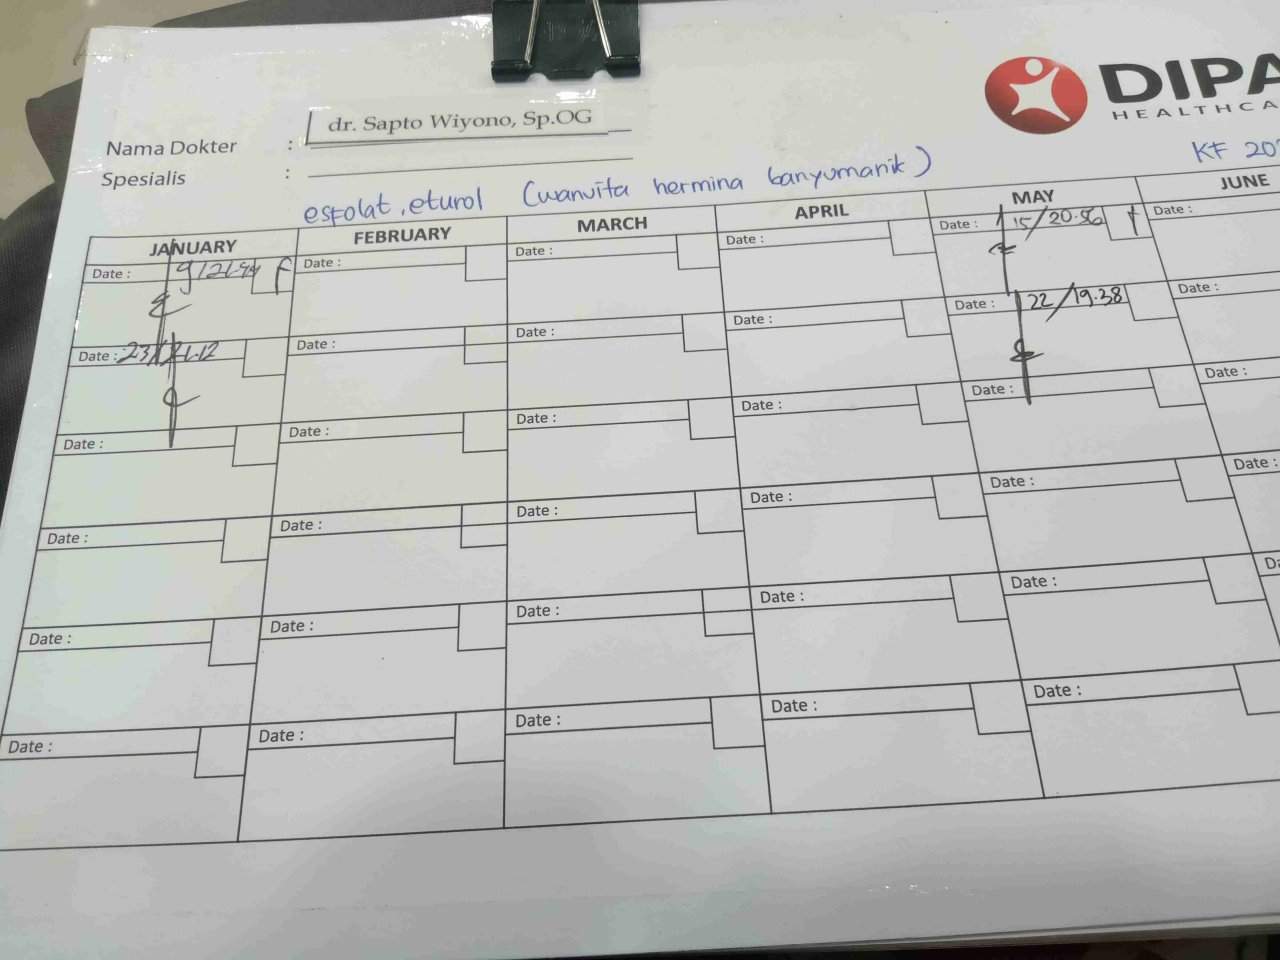 DIPA
HEALTHCA
Nama Dokter : dr. Sapto Wiyono, Sp.OG
Spesialis :
esfolat, eturol (wanvita hermina banyumanik)
KF 202
JANUARY FEBRUARY MARCH APRIL MAY JUNE
Date : Date : Date : Date : Date : 15/20.56 Date :
Date : 23/21.12 Date : Date : Date : Date : 22/19.38 Date :
Date : Date : Date : Date : Date : Date :
Date : Date : Date : Date : Date : Date :
Date : Date : Date : Date : Date : Da
Date : Date : Date : Date : Date :